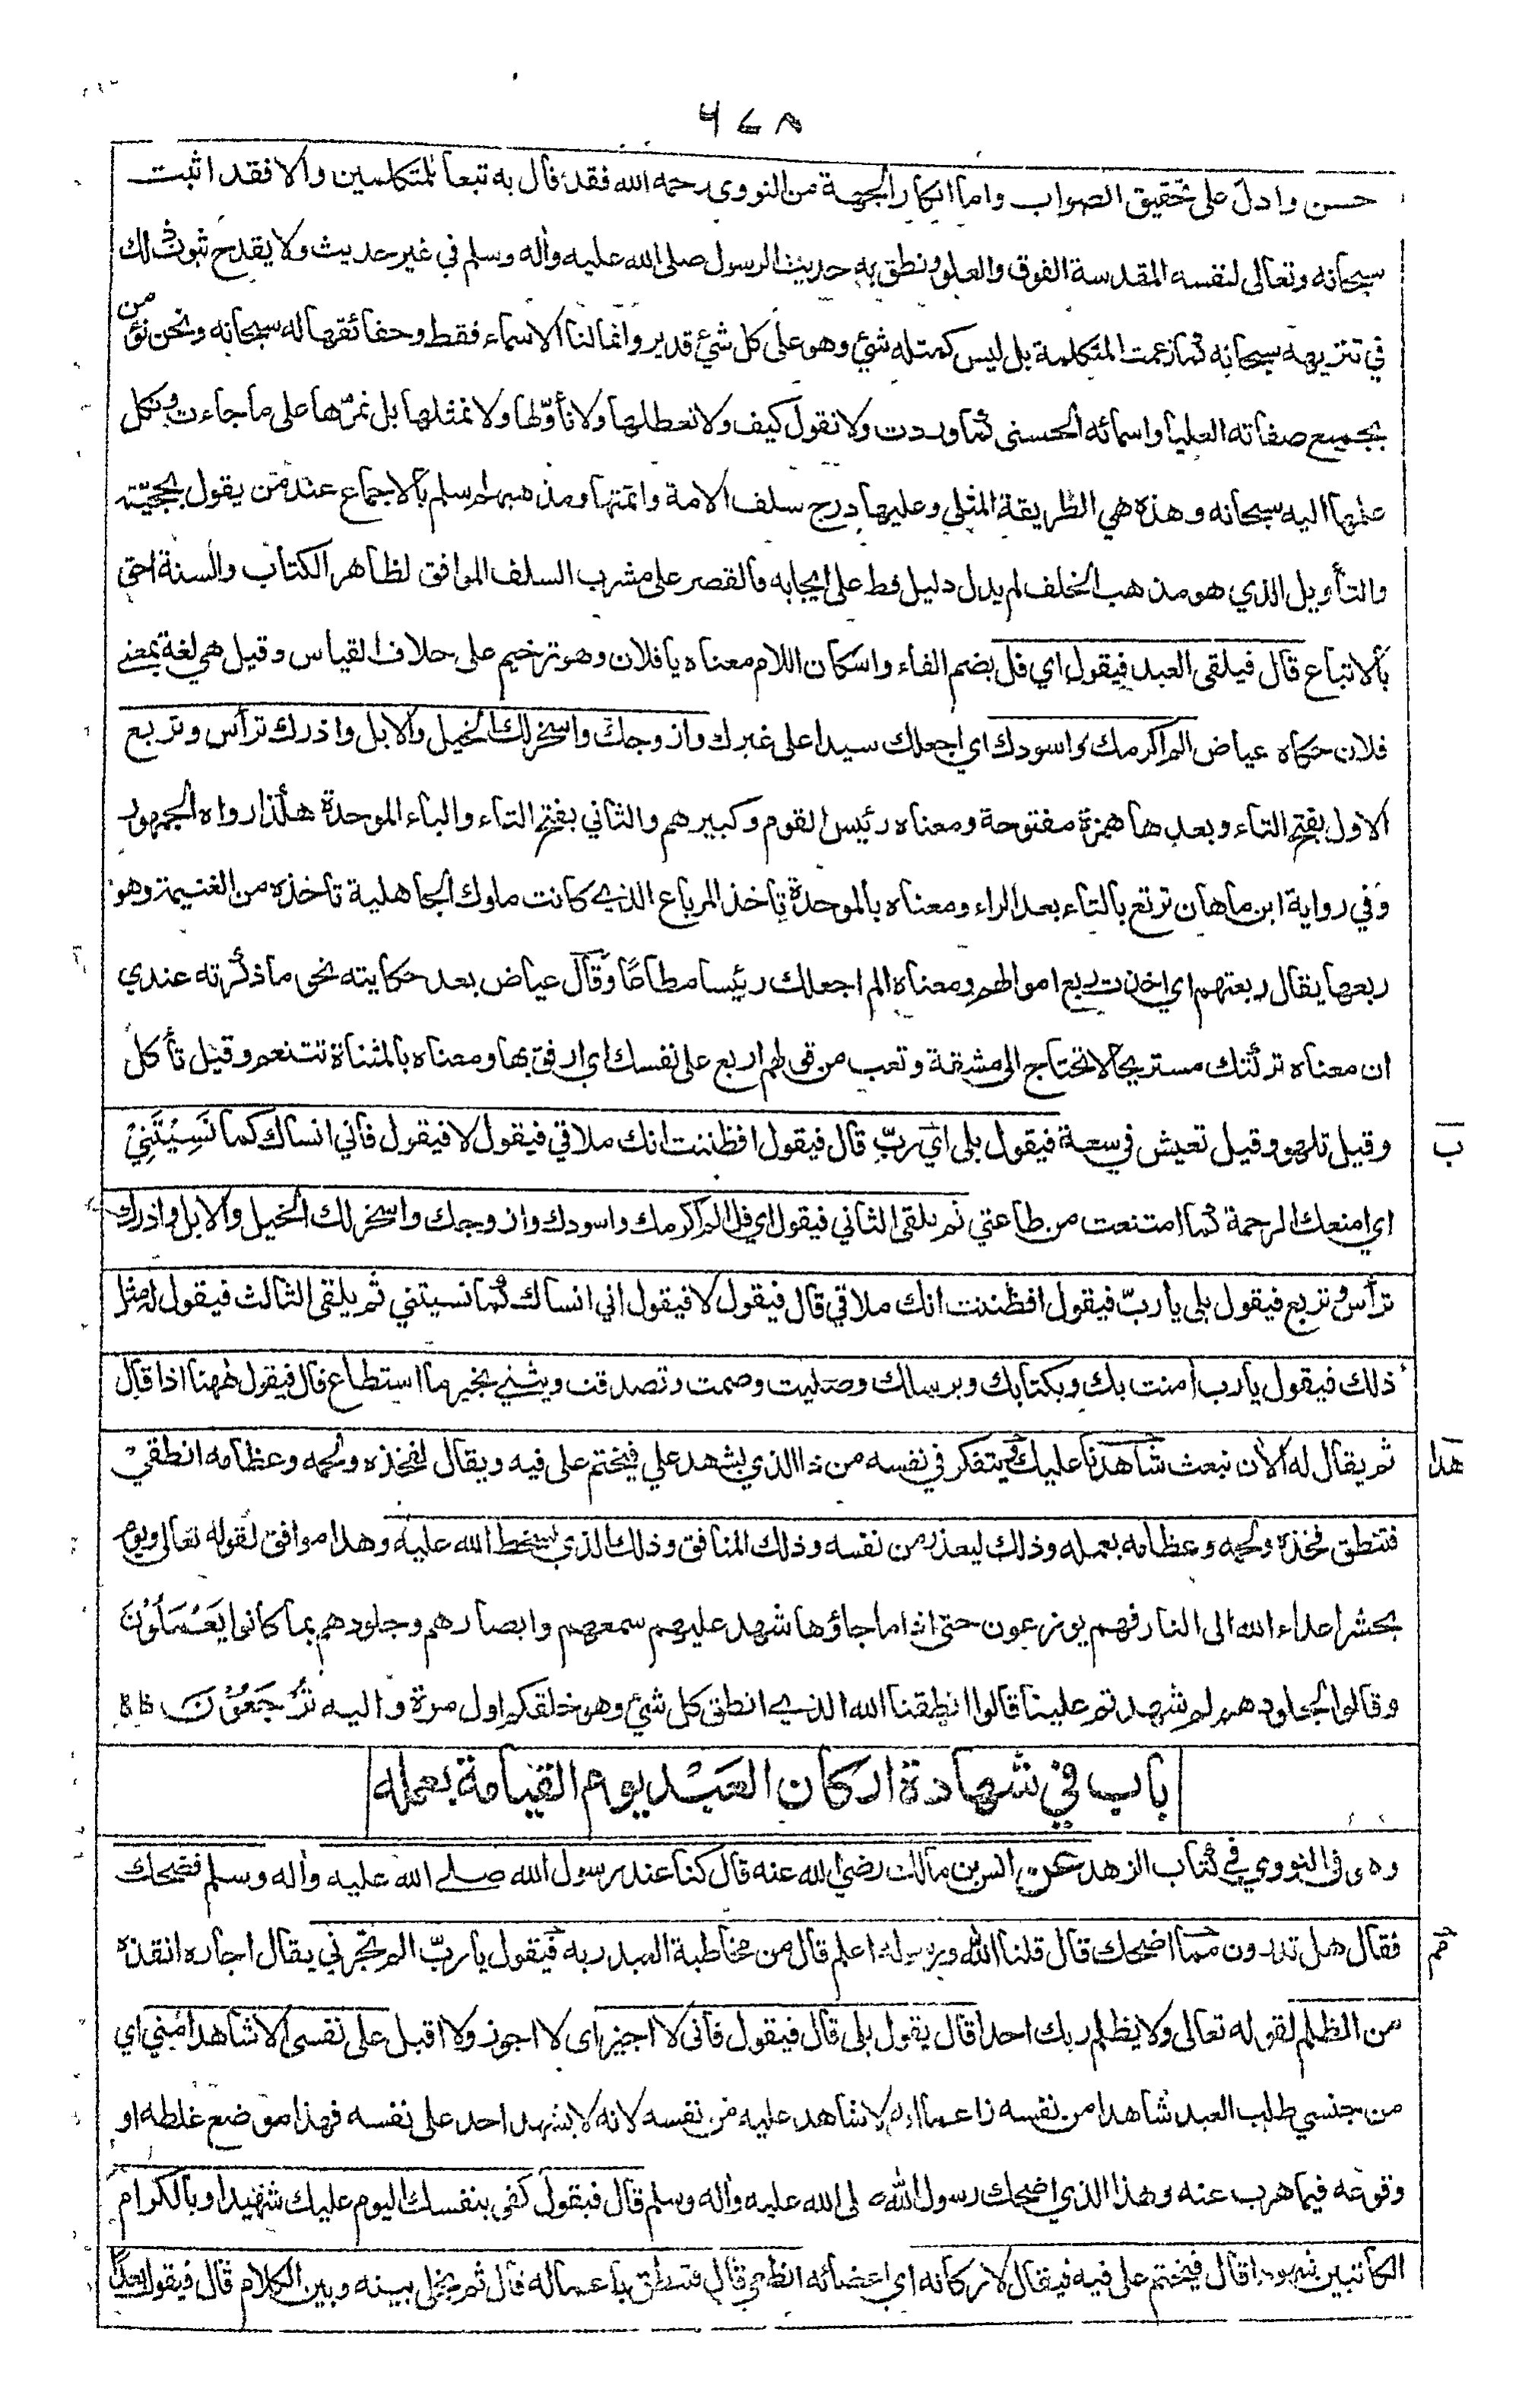 ٦٧٨
حسن وادل على تحقيق الصواب واما انكار الجهة من النووى رحمه الله فقد قال به تبعا للمتكلمين والا فقد اثبت
سبحانه وتعالى لنفسه المقدسة الفوق والعلو ونطق به حديث الرسول صلى الله عليه وآله وسلم في غير حديث ولا يقدح ثبوت ذلك
في تنزيهه سبحانه كما زعمت المتكلمة بل ليس كمثله شئ وهو على كل شئ قدير وانما لنا الاسماء فقط وحقائقها له سبحانه ونحن نؤمن
بجميع صفاته العليا واسمائه الحسنى كما وردت ولا نقول كيف ولا نعطلها ولا نأولها ولا نمثلها بل نمرّها على ما جاءت ونكل
علمها اليه سبحانه وهذه هي الطريقة المثلى وعليها درج سلف الامة وائمتها ومذهبهم اسلم بالاجماع عند من يقول بحجيّته
والتأويل الذي هو مذهب الخلف لم يدل دليل قط على ايجابه فالقصر على مشرب السلف الموافق لظاهر الكتاب والسنة احق
بالاتباع قال فيلقى العبد فيقول اي فل بضم الفاء واسكان اللام معناه يا فلان وهو ترخيم على خلاف القياس وقيل هي لغة بمعنى
فلان حكاه عياض الم اكرمك واسودك اي اجعلك سيدا على غيرك وازوجك واسخر لك الخيل والابل واذرك ترأس وتربع
الاول بفتح التاء وبعدها همزة مفتوحة ومعناه رئيس القوم وكبيرهم والثاني بفتح التاء والباء الموحدة هكذا رواه الجمهور
وفي رواية ابن ماهان ترتع بالتاء بعد الراء ومعناه بالموحدة تاخذ المرباع الذي كانت ملوك الجاهلية تاخذه من الغنيمة وهو
ربعها يقال ربعتهم اي اخذت ربع اموالهم ومعناه الم اجعلك رئيسا مطاعا وقال عياض بعد حكايته نحو ما ذكرته عندي
ان معناه تركتك مستريحا لا تحتاج الى مشقة وتعب من قولهم اربع على نفسك اي ارفق بها ومعناه بالمثناة تتنعم وقيل تأكل
وقيل تلهو وقيل تعيش في سعة فيقول بلى اي ربّ قال فيقول افظننت انك ملاقي فيقول لا فيقول فاني انساك كما نَسِيْتَنِيْ
ب
اي امنعك الرحمة كما امتنعت من طاعتي ثم يلقى الثاني فيقول اي فل الم اكرمك واسودك وازوجك واسخر لك الخيل والابل واذرك
ترأس وتربع فيقول بلى يا ربّ فيقول افظننت انك ملاقي قال فيقول لا فيقول اني انساك كما نسيتني ثم يلقى الثالث فيقول له مثل
ذلك فيقول يا رب امنت بك وبكتابك وبرسلك وصليت وصمت وتصدقت ويثني بخير ما استطاع قال فيقول ههنا اذا قال
ثم يقال له الآن نبعث شاهدنا عليك ويتفكر في نفسه من ذا الذي يشهد علي فيختم على فيه ويقال لفخذه ولحمه وعظامه انطقي
هذا
فتنطق فخذه ولحمه وعظامه بعمله وذلك ليعذر من نفسه وذلك المنافق وذلك الذي يسخط الله عليه وهذا موافق لقوله تعالى ويوم
يحشر اعداء الله الى النار فهم يوزعون حتى اذا ما جاؤها شهد عليهم سمعهم وابصارهم وجلودهم بما كانوا يَعْمَلُوْنَ
وقالوا لجلودهم لم شهدتم علينا قالوا انطقنا الله الذي انطق كل شئ وهو خلقكم اول مرة واليه تُرْجَعُوْنَ
باب في شهادة اركان العَبْد يوم القيامة بعمله
وهو في النووي في كتاب الزهد عن انس بن مالك رضي الله عنه قال كنا عند رسول الله صلى الله عليه وآله وسلم فضحك
فقال هل تدرون مما اضحك قال قلنا الله ورسوله اعلم قال من مخاطبة العبد ربه فيقول يا ربّ الم تجرني يقال اجاره انقذه
من الظلم لقوله تعالى ولا يظلم ربك احدا قال يقول بلى قال فيقول فاني لا اجيز اى لا اجوز ولا اقبل على نفسى الا شاهدا مني اي
من جنسي طلب العبد شاهدا من نفسه زاعما انه لا شاهد عليه من نفسه لانه لا يشهد احد على نفسه فهذا موضع غلطه او
وقوعه فيما هرب عنه وهذا الذي اضحك رسول الله صلى الله عليه وآله وسلم قال فيقول كفى بنفسك اليوم عليك شهيدا وبالكرام
الكاتبين شهودا قال فيختم على فيه فيقال لاركانه اي اعضائه انطقي قال فتنطق باعماله قال ثم يخلى بينه وبين الكلام قال فيقول بعدًا